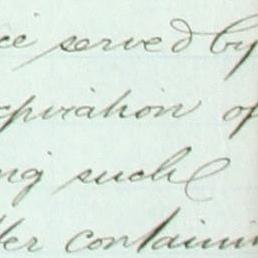 ce served by
xpiration of
ng such
ter containin